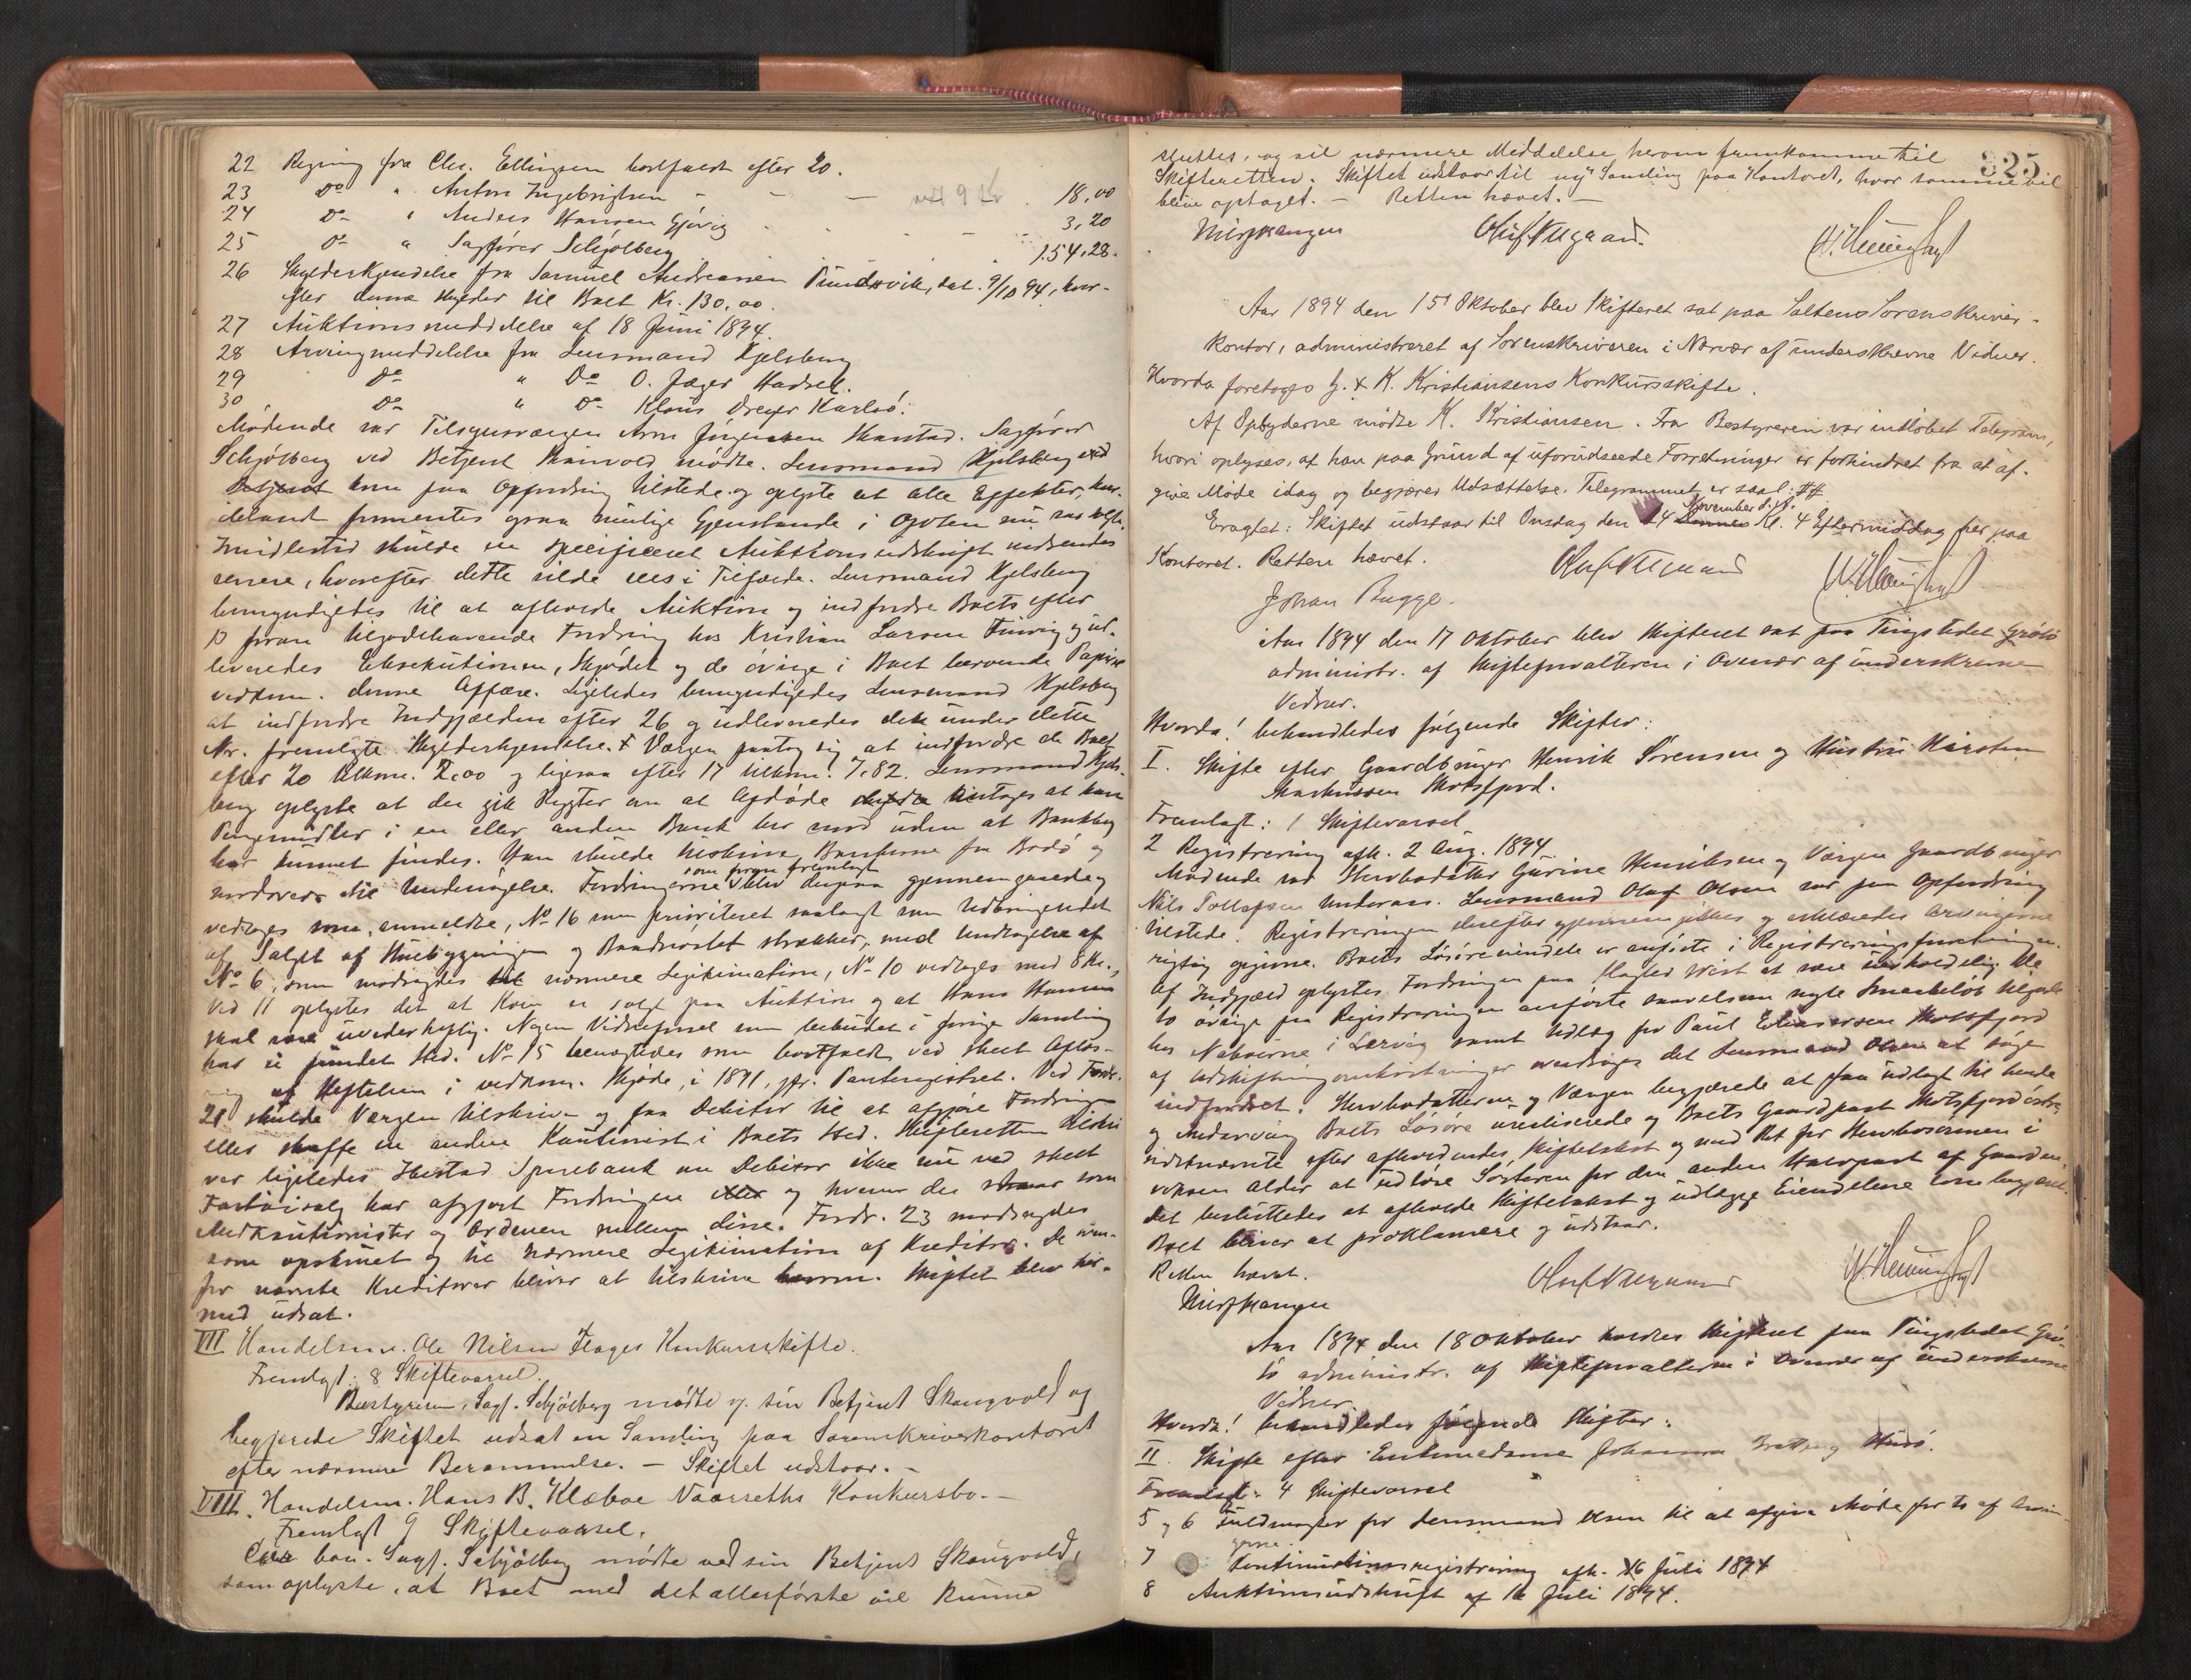 22 Regning fra Chr. Ellingsen bortfaldt efter 20.
23 Do " Anton Ingebrigtsen - - - ved 9 Kr. 18,00
24 Do " Anders Hansen Gjøvig 3,20
25 Do " Sagfører Schjølberg 154,28.
26 Skylderkjendelse fra Samuel Andreassen, dat. 9/10 94, hvor-
efter denne skylder til Boet Kr. 130,00.
27 Auktionsmeddelelse af 18 Juni 1894.
28 Arvingmeddelelse fra Lensmand Hjelsberg
29 Do " Do O. Jæger Hadsel.
30 Do " Do Klaus Dreyer Karlsö.
Mødende var Tilsynsværgen Arn Jørgensen Skarstad. Sagfører
Schjølberg ved Betjent mødte. Lensmand Hjelsberg ved
Betjent kom paa Opfordring tilstede og oplyste at alle Effekter, her-
iblandt gjenstande i Gjoten nu var solgt.
Imidlertid skulde en specificeret Auktionsudskrift indsendes
senere, hvorefter dette vilde sees i Tilfælde. Lensmand Hjelsberg
bemyndigedes til at afholde Auktion og indfordre Boets efter
13 foran tilgodehavende Fordring hos Kristian Larsen og ud-
leveredes Eksekutionen, Skjødet og de øvrige i Boet beroende Papirer
vedkom. denne Affære. Ligeledes bemyndigedes Lensmand Hjelsberg
at indfordre Indgjælden efter 26 og udleveredes den under dette
Nr. fremlagte Skylderkjendelse. Værgen paatog sig at indfordre de Boet
efter 20 tilkom. 2,00 og ligesaa efter 17 tilkom. 7,82. Lensmand Hjels-
berg oplyste at der gik Rygter om at Afdøde skulde have
Pengemidler i en eller anden Bank her nord uden at Bankbog
har kunnet findes. Han skulde tilskrive Bankerne fra Bodø og
nordover til Undersøgelse. Fordringerne som foran fremlagt blev derpaa gjennemgaaede og
vedtages som anmeldte, No 16 som prioriteret saalangt som Udbringendet
af Salget af Huebygningen og strækker, med Undtagelse af
No 6, som modsagdes til nærmere Legitimation, No 10 vedtages med 8 Kr.,
Ved 11 oplystes det at Koen er solgt paa Auktion og at Hans Hansen
skal være uvederheftig. Nogen Vidneførsel som bebudet i forrige Samling
har ei fundet Sted. No 15 benegtedes som bortfaldt ved skeet Afløs-
ning af Heftelsen i vedkom. Skjøde, i 1891, jfr. Panteregistret. Ved Fordr.
21 skulde Værgen tilskrive og faa Debitor til at afgjøre Fordringen
eller skaffe en anden Kautionist i Boets Sted. Skifteretten tilskri-
ver ligeledes Ibestad Sparebank om Debitor ikke nu ved skeet
Fartøisalg har afgjort Fordringen eller og hvem der staar som
Medkautionister og Ordenen mellem disse. Fordr. 23 modsagdes
som opskruet og til nærmere Legitimation af Kreditor. De oven-
for nævnte Kreditorer bliver at tilskrive herom. Skiftet blev her-
med udsat.
VII Handelsm. Ole Nilsen Hages Konkursskifte.
Fremlagt: 8 Skiftevarsel.
Bestyreren, Sagf. Schjølberg mødte v. sin Betjent Skaugvold og
begjærede Skiftet udsat en Samling paa Sorenskriverkontoret
efter nærmere Berammelse. - Skiftet udstaar. -
VIII. Handelsm. Hans B. Klæboe Naarseths Konkursbo. -
Fremlagt 9 Skiftevarsel.
Sagf. Schjølberg mødte ved sin Betjent Skaugvold,
som oplyste, at Boet med det allerførste vil kunne
325
sluttes, og vil nærmere Meddelelse herom fremkomme til
Skifteretten. Skiftet udstaar til ny Samling paa Kontoret, hvor samme vil
blive optaget. - Retten hævet. -
Aar 1894 den 15d Oktober blev Skifteret sat paa Saltens Sorenskriver-
kontor, administreret af Sorenskriveren i Nærvær af underskrevne Vidner.
Hvorda foretoges J. & K. Kristiansens Konkursskifte.
Af Opbyderne mødte K. Kristiansen. Fra Bestyreren var indløbet Telegram,
hvori oplyses, at han paa Grund af uforudseede Forretninger er forhindret fra at af-
give Møde idag og begjærer Udsættelse. Telegrammet er saal: ##
Eragtet: Skiftet udstaar til Onsdag den 14 November d.A. Kl. 4 Eftermiddag her paa
Kontoret. Retten hævet.
Johan Bugge.
Aar 1894 den 17 Oktober blev Skifteret sat paa Tingstedet Grøtø
administr. af Skifteforvalteren i Overvær af underskrevne
Vidner.
Hvorda! behandledes følgende Skifter:
I. Skifte efter Gaardbruger Henrik Sørensen og Hustru Kirsten
Markussen Skotsfjord.
Fremlagt: 1 Skiftevarsel
2 Registrering afh. 2 Aug. 1894.
Mødende var Stervbodatter Gurine Henriksen og Værgen Gaardbruger
Nils Tollefsen. Lensmand Olaf Olsen var paa Opfordring
tilstede. Registreringen derefter gjennemgikkes og erklæredes Arvingerne
rigtig opgivne. Boets Løsøreeiendele er anførte i Registreringsforretningen.
Af Indgjæld oplystes Fordringen paa at være uerholdelig. De
to øvrige paa Registreringen anførte saavelsom nogle Smaabeløb tilgode
hos Naboerne i Lervig samt Udlæg for Paul Skotsfjord
af Udskiftningsomkostninger overdroges det Lensmand Olsen at søge
indfordret. Stervbodatteren og Værgen begjærede at faa udlagt til hende
og Medarving Boets Løsøre urealiserede og Boets Gaardpart Skotsfjord
efter afholdendes Skifteskat og med Ret for Stervbosønnen i
voksen Alder at udløse Søsteren for den anden Halvpart af Gaarden.
Det besluttedes at afholde Skifteskat og udlægge Eiendelene som begjært.
Boet bliver at proklamere og udstaar.
Retten hævet.
Aar 1894 den 18 Oktober holdtes Skifteret paa Tingstedet Grø-
tø administr. af Skifteforvalteren i Overvær af underskrevne
Vidner.
Hvorda! behandledes følgende Skifter:
II. Skifte efter Enkemadame Johanna
Fremlagt: 4 Skiftevarsel
5 og 6 Fuldmagter for Lensmand Olsen til at afgive Møde for to af Arvin-
gerne.
7 Kontinuationsregistrering afh. 16 Juli 1894
8 Auktionsudskrift af 16 Juli 1894.